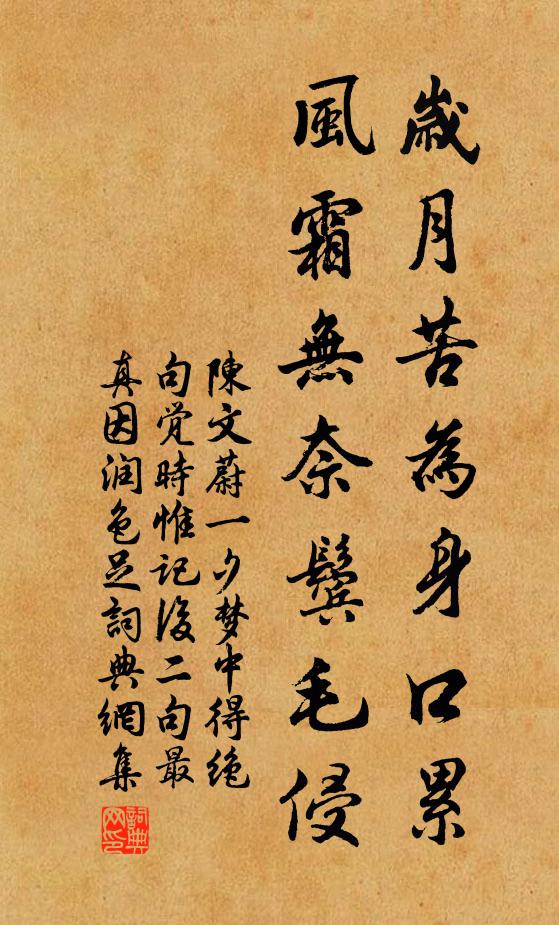 歲月苦為身口累
風霜無奈鬢毛侵
陳文蔚一夕梦中得绝
句觉時惟记後二句最
真因润色足詞典網集
詞典网印